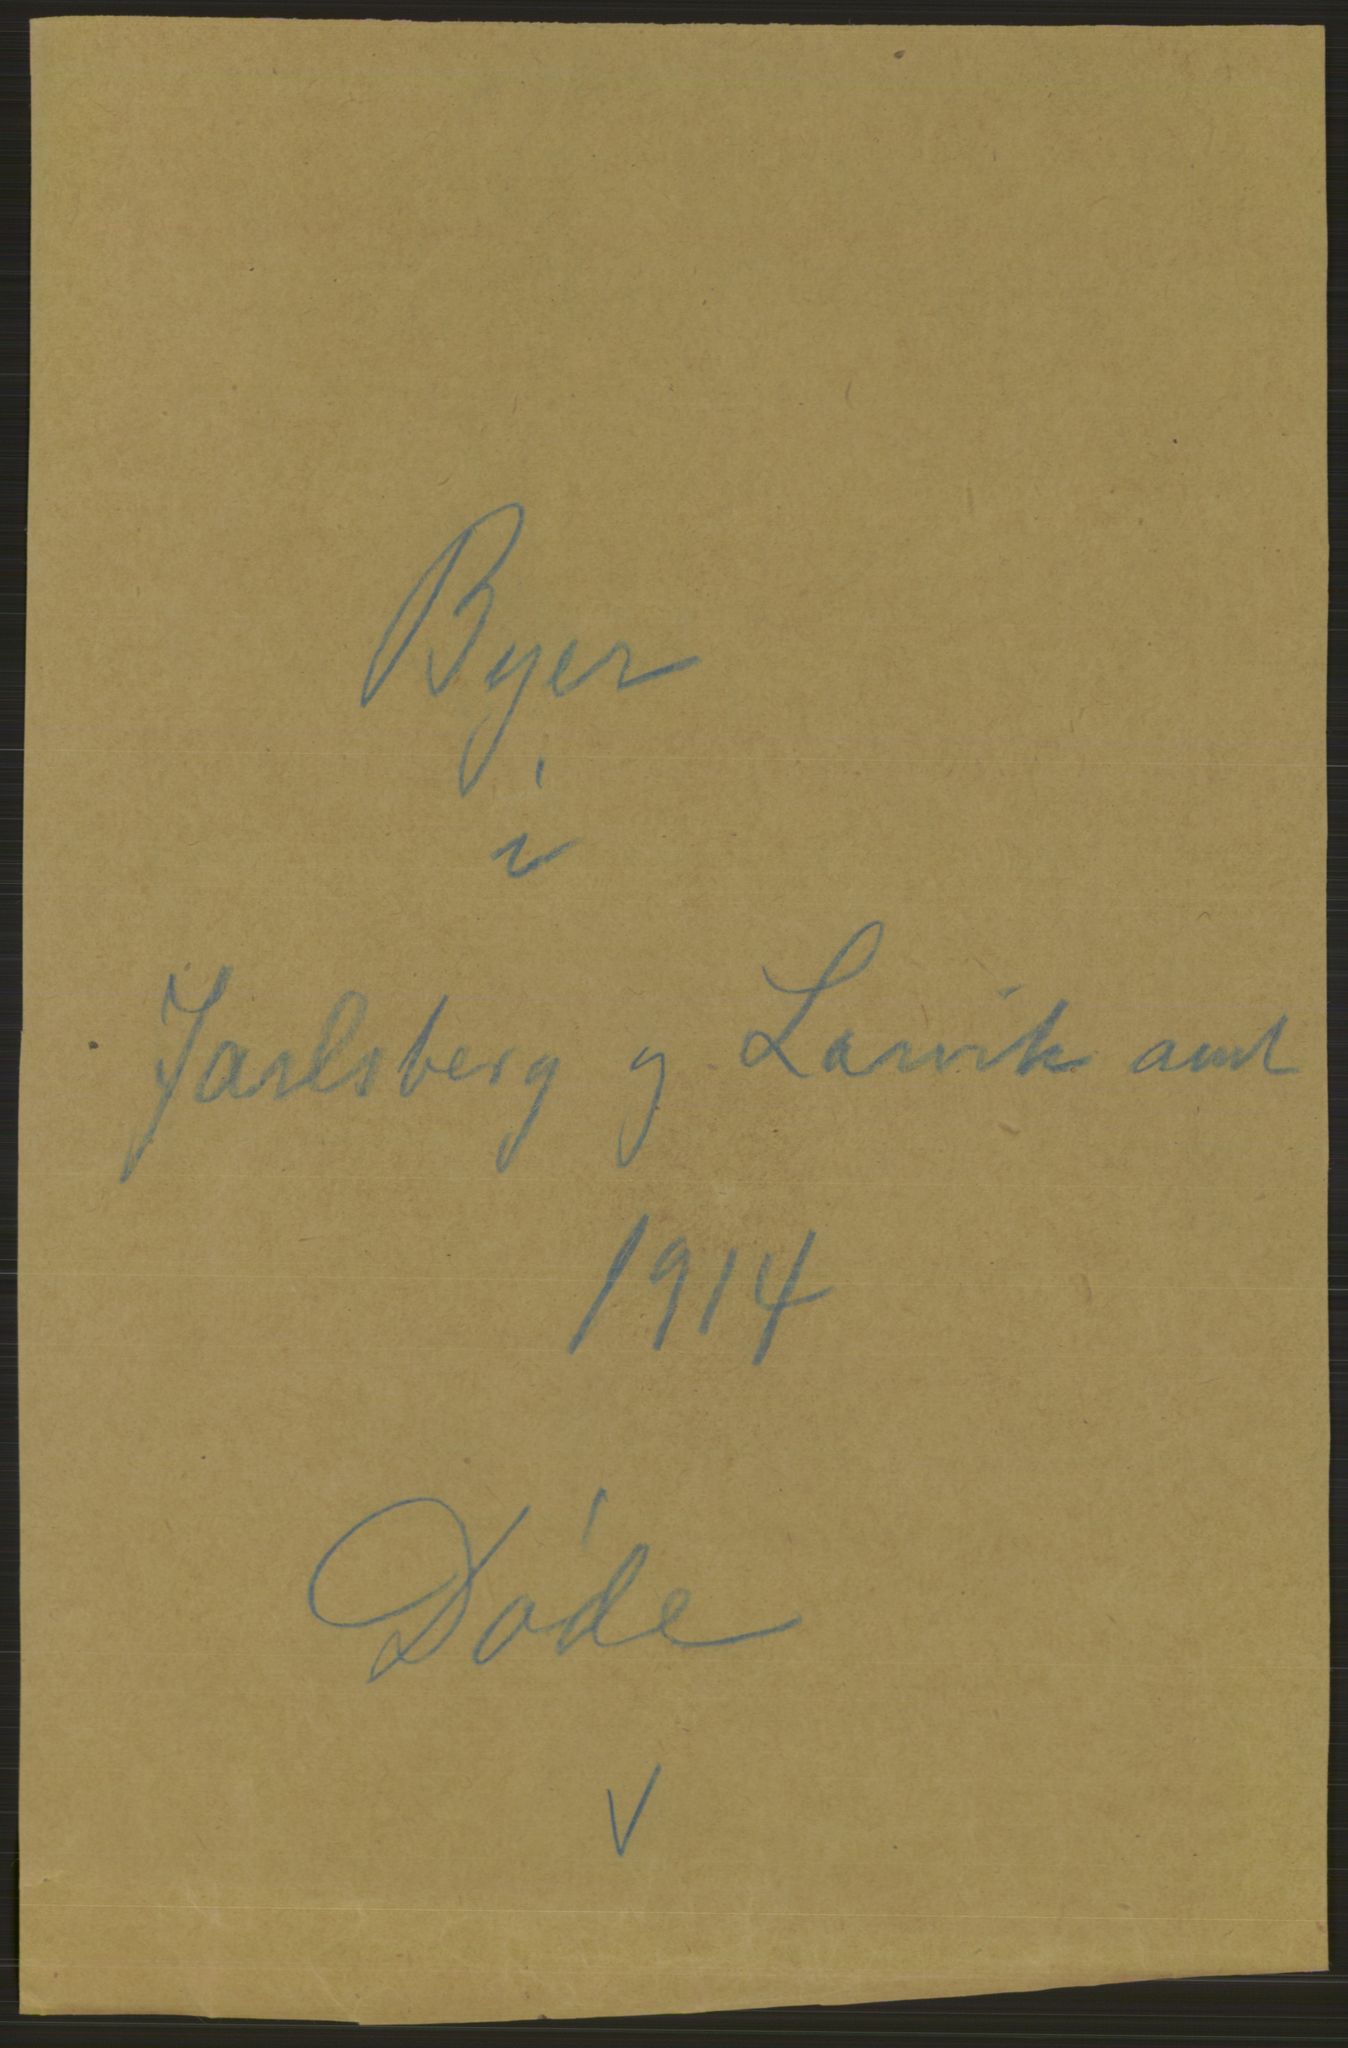 Byer
i
Jarlsberg og Larvik amt
1914
Døde
V